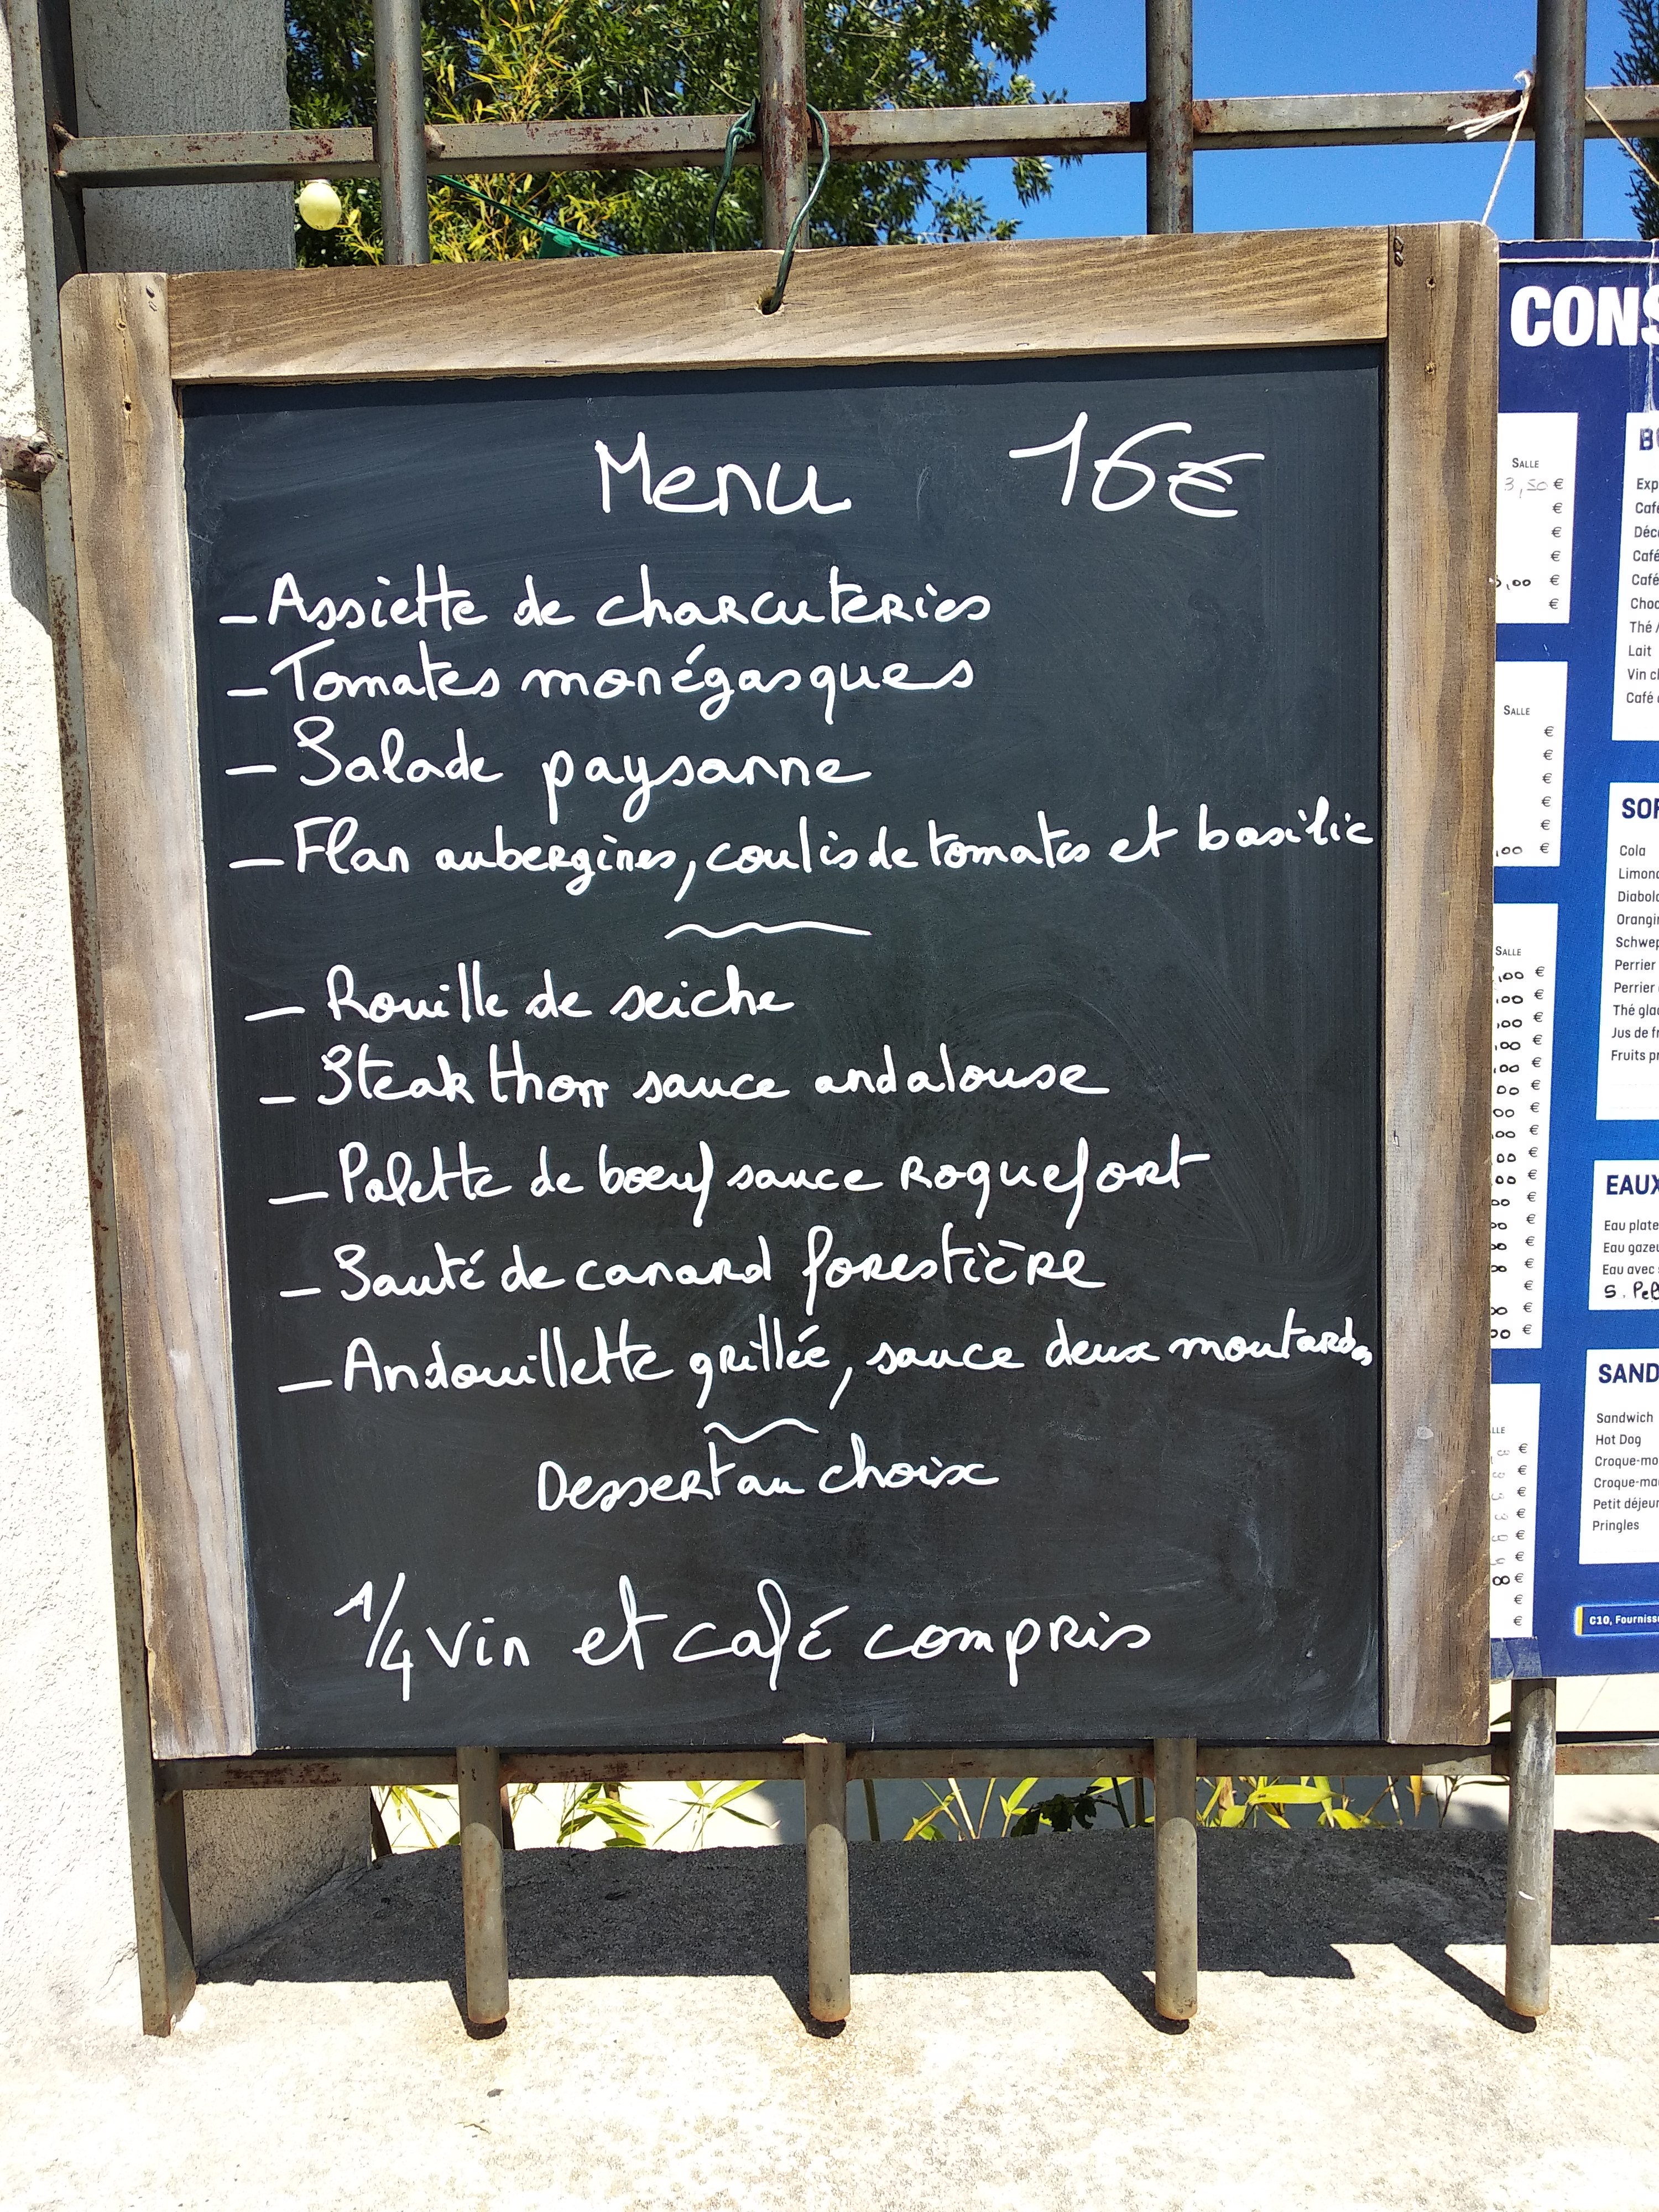 Menu 16€
- Assiette de charcuteries
- Tomates monégasques
- Salade paysanne
- Flan aubergines, coulis de tomates et basilic
- Rouille de seiche
- Steak thon sauce andalouse
- Palette de boeuf sauce roquefort
- Sauté de canard forestière
- Andouillette grillée, sauce deux moutardes
Dessert au choix
1/4 vin et café compris
CONS
SALLE
3,50 €
€
€
€
,00 €
€
Exp
Café
Déc
Café
Café
Choc
Thé /
Lait
Vin ch
Café
SALLE
€
€
€
€
€
,00 €
SOF
Cola
Limona
Diabolo
Orangin
Schwep
Perrier
Perrier
Thé gla
Jus de fr
Fruits pr
SALLE
,00 €
,00 €
,00 €
,00 €
,00 €
00 €
00 €
,00 €
00 €
00 €
€
€
€
€
€
€
€
EAUX
Eau plate
Eau gazeu
Eau avec
S. Pel
SAND
Sandwich
Hot Dog
Croque-mo
Croque-ma
Petit déjeun
Pringles
LLE
€
€
€
€
€
€
€
€
€
C10, Fourniss